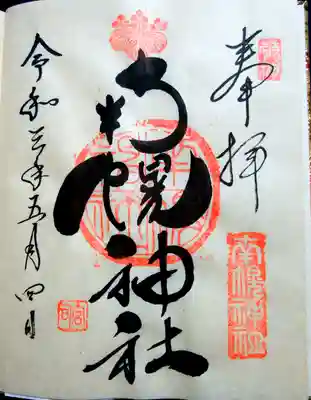 奉拝
南幌神社
南幌神社
令和三年五月四日
宮司